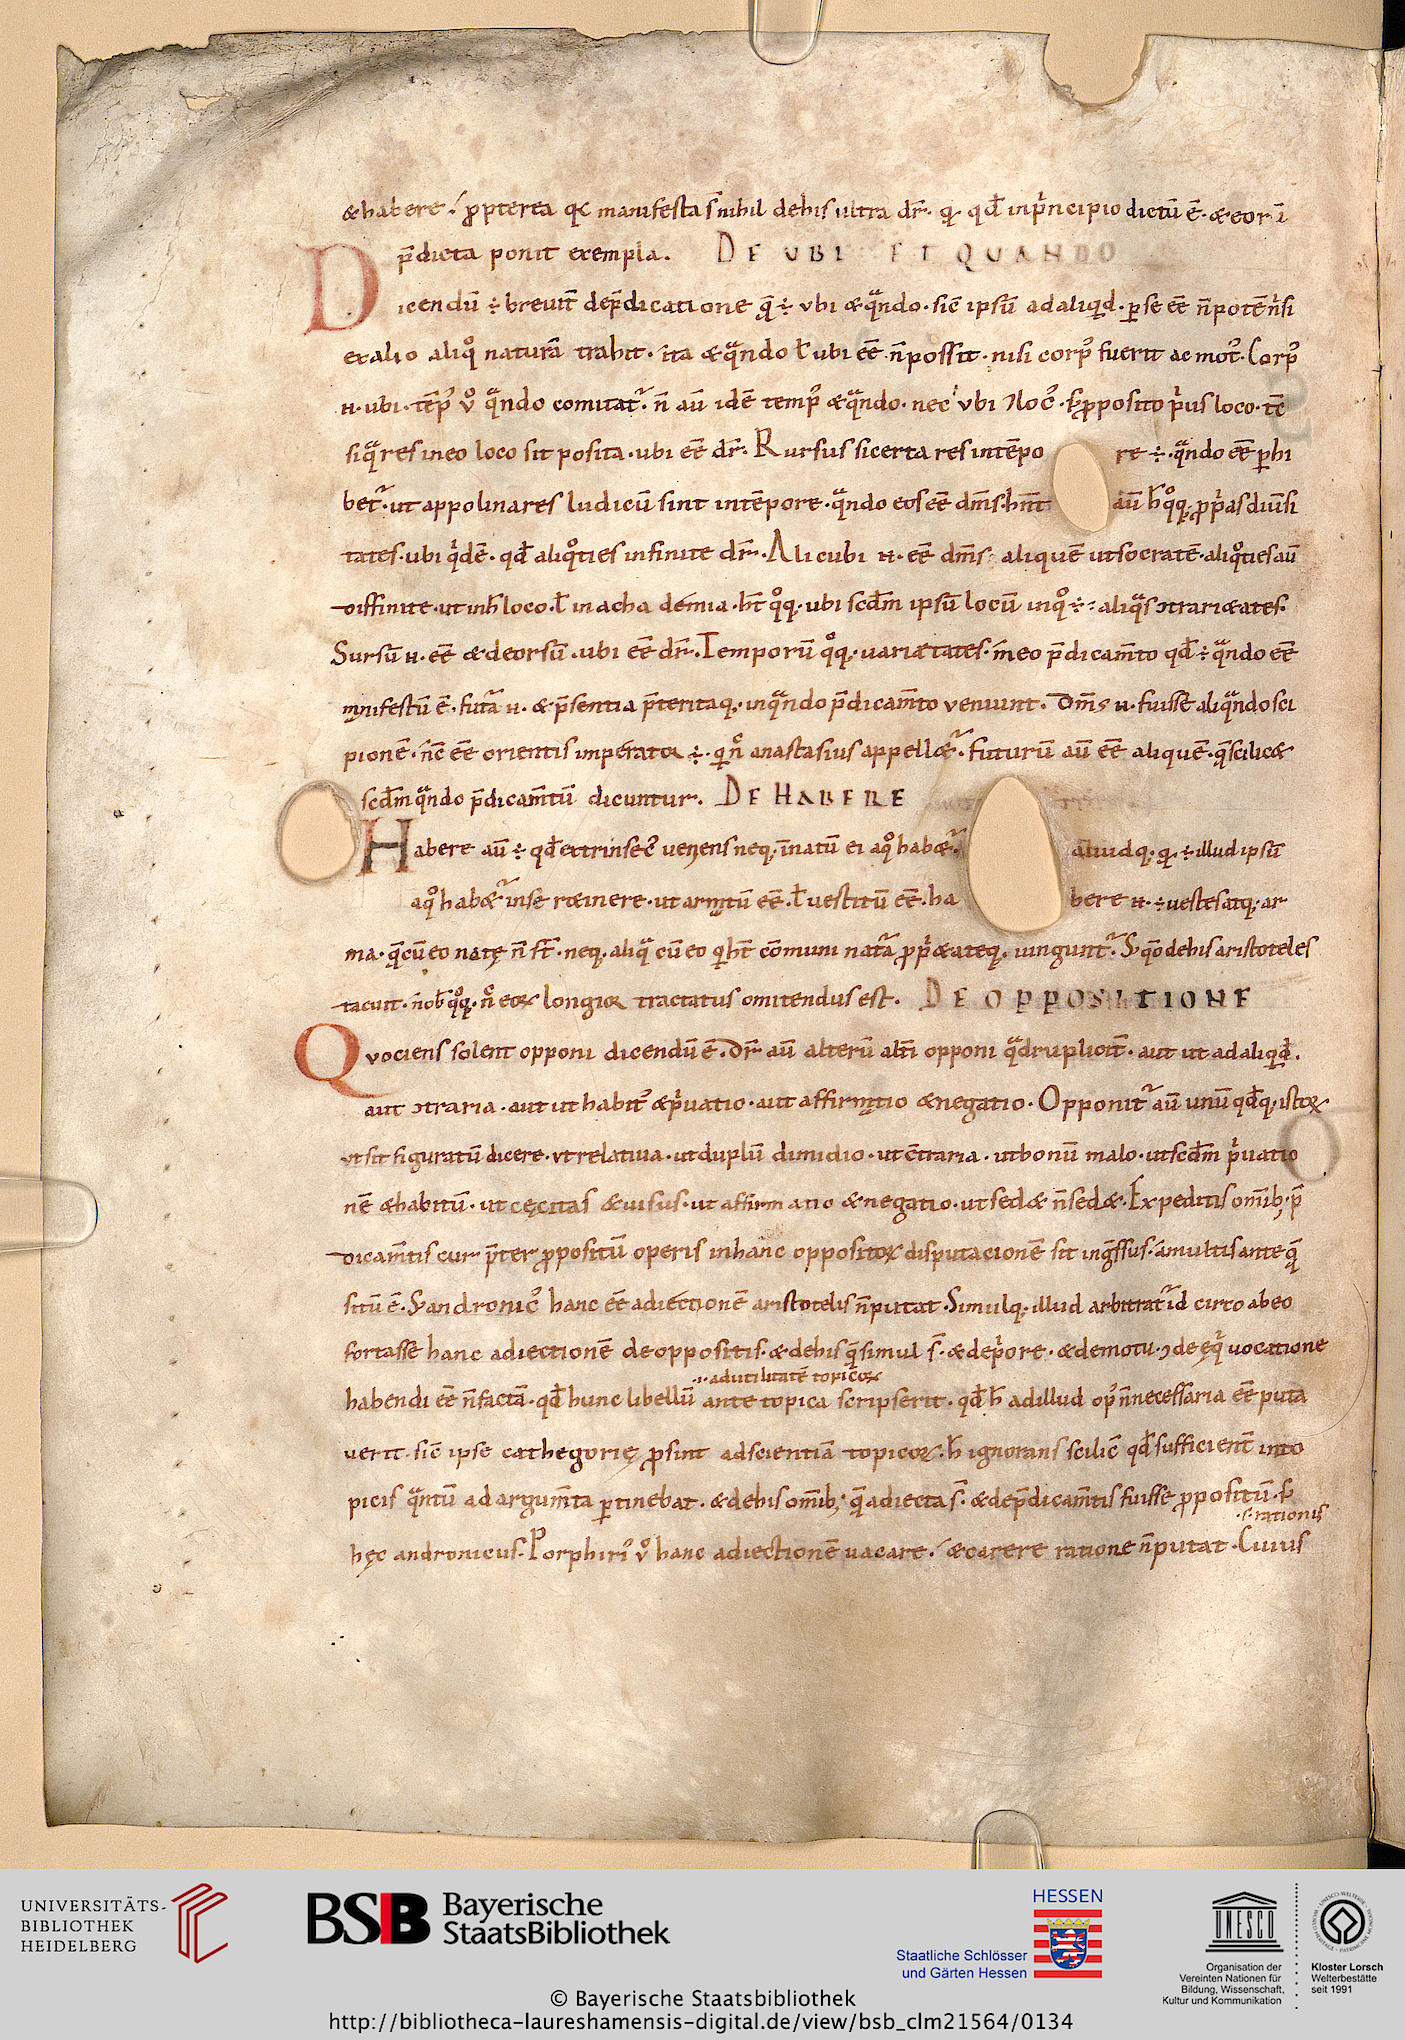 & habere . ꝓpterea qđ manifesta s̄ nihil de his ultra dr̄ . quā qđ in pͥncipio dictū ē . & eorū
p̄dicta ponit exempla . DE UBI ET QUANDO
Dicendū ÷ breuit̄ de p̄dicatione que ÷ ubi & qͣndo . sic̄ ipsū ad aliqͥd . per se eē n̄ potē nͥsi
ex alio aliqͦ naturā trahit . ita & qͣndo ł ubi eē n̄ possit . nisi corpꝰ fuerit ac motꝰ . Corpꝰ
H . ubi . tēpꝰ v̊ qͣndo comitat̄ . n̄ aū idē tempꝰ & qͣndo . nec ubi
si qͣ res in eo loco sit posita . ubi eē dr̄ . Rursus si certa res in tēpo re ÷ . qͣndo eē perhi
bet̄ . ut appolinares ludi cū sint in tēpore . qͣndo eos eē dm̄s . hn̄t aū
tates . ubi qͥdē . qđ aliqͦties infinite dr̄ . Alicubi H . eē dm̄s aliquē ut socratē . aliqͦties aū
diffinite . ut in h̄ loco . ł in achademia . ht̄ qͦq; . ubi scd̄m ipsū locū in qͦ ÷ aliqͣs
Sursū H . eē & deorsū . ubi eē dr̄ . Temporū qͦq; . uari&ates . in eo p̄dicam̄to qđ ÷ qͣndo eē
manifestū ē . futͣra H . & p̄sentia p̄teritaq; . in qͣndo p̄dicam̄to veniunt . Dm̄s H . fuisse aliqͣndo sci
pionē . nc̄ eē orientis imperator ÷ . anastasius appell&̄ . futurū aū eē aliquē . scilic&
scd̄m qͣndo p̄dicam̄tū dicuntur . DE HABERE
Habere aū ÷ qđ extrinsecꝰ ueniens neq; īnatū ei a qͦ hab&̄ . illud ipsū
a qͦ hab&̄ in se r&inere . ut armatū eē . ł uestitū eē . ha bere H . ÷ uestes atq; ar
ma . cū eo natę n̄ st̄ . neq; aliqͣ cū eo cōmuni natͣra ꝓpͥ&ateq; iungunt̄ . S; qͦ de his aristoteles
tacuit . nob̄ qͦq; . longior tractatus omitendus est . DE OPPOSITIONE
Quociens solent opponi dicendū ē . Dr̄ aū alterū alt̄i opponi qͣdruplicit̄ . aut ut ad aliqͥd .
aut ↄtraria . aut ut habitꝰ & pͥuatio . aut affirmatio & negatio . Opponit̄ aū unū qđq; istoꝝ
ut sit figuratū dicere . ut relatiua . ut duplū dimidio . ut cōtraria . ut bonū malo . ut scd̄m pͥuatio
nē & habitū . ut cęcitas & uisus . ut affirmatio & negatio . ut sed& n̄ sed& . Expeditis omib; p̄
dicam̄tis cur p̄ter ꝓpositū operis in hanc oppositoꝝ disputacionē sit ingͣssus . a multis ante quę
situ ē . S; andronicꝰ hanc eē adiectionē aristotelis n̄ putat . Simulq; illud arbitrat̄ id circo ab eo
fortasse hanc adiectionē de oppositis . & de his simul s̄ . & de pͥore . & de motu . ↄ de ęqͥuocatione
⁘ ad utilitatē topicoꝝ
habendi eē n̄ factā . qđ hunc libellū ante topica scripserit . qđ h̄ ad illud opꝰ n̄ necessaria eē puta
uerit . sic̄ ipse cathegorię ꝓsint ad scientiā topicoꝝ . h̄ ignorans scilic̄ qđ sufficient̄ in to
picis qͣntū ad argum̄ta ꝑtinebat . & de his omib; . quę adiecta s̄ . & de p̄dicam̄tis fuisse ꝓpositū . S;
.s. rationis
hęc andronicus . Porphiriꝰ v̊ hanc adiectionē uacare . & carere ratione n̄ putat . Cuius
UNIVERSITÄTS-
BIBLIOTHEK
HEIDELBERG
BSB Bayerische
StaatsBibliothek
HESSEN
Staatliche Schlösser
und Gärten Hessen
UNESCO
Organisation der
Vereinten Nationen für
Bildung, Wissenschaft,
Kultur und Kommunikation
Kloster Lorsch
Welterbestätte
seit 1991
© Bayerische Staatsbibliothek
http://bibliotheca-laureshamensis-digital.de/view/bsb_clm21564/0134